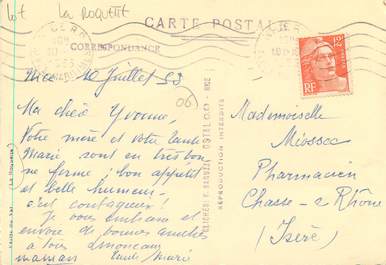 Lot La Roquette
CARTE POSTALE
CORRESPONDANCE
Nice 10 Juillet 53
06
Ma chère Yvonne,
Votre mère et votre tante
Marie sont en très bon
ne forme; bon appetit
et belle humeur -
c'est contagieux!
Je vous embrasse et
envoie de bonnes amitiés
à tous
maman tante Marie
REPRODUCTION INTERDITE
12F
RF
Mademoiselle
Méossec
Pharmacien
Chasse-s-Rhône
(Isère)